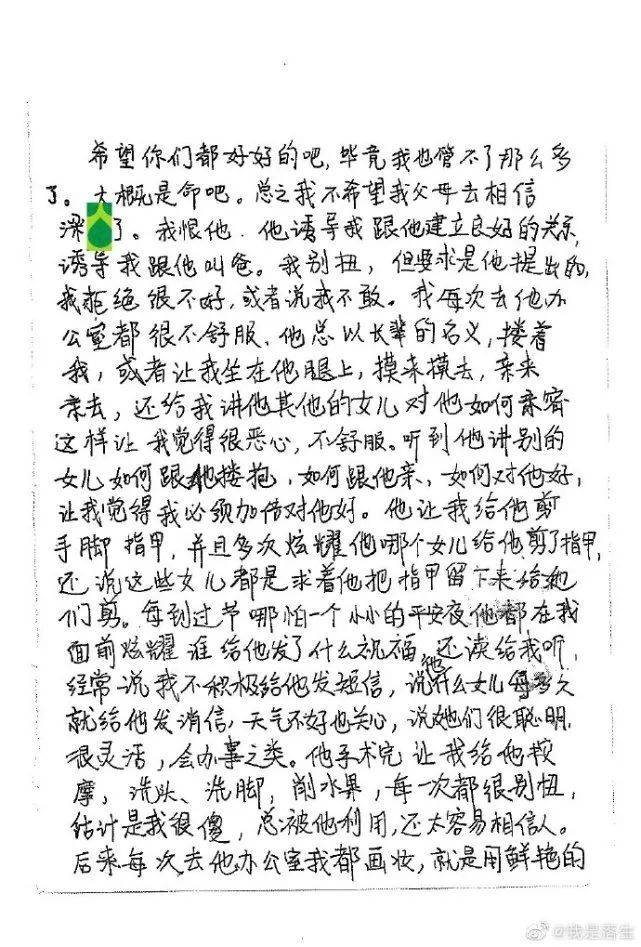 希望你们都好好的吧，毕竟我也管不了那么多
了。大概是命吧。总之我不希望我父母去相信
梁 了。我恨他.他诱导我跟他建立良好的关系，
诱导我跟他叫爸。我别扭，但要求是他提出的，
我拒绝很不好，或者说我不敢。我每次去他办
公室都很不舒服、他总以长辈的名义，搂着
我，或者让我坐在他腿上，摸来摸去，亲来
亲去，还给我讲他其他的女儿对他如何亲密
这样让我觉得很恶心，不舒服。听到他讲别的
女儿如何跟他搂抱，如何跟他亲、如何对他好，
让我觉得我必须加倍对他好。他让我给他剪
手脚指甲，并且多次炫耀他哪个女儿给他剪了指甲，
还说这些女儿都是求着他把指甲留下来给她
们剪。每到过节哪怕一个小小的平安夜他都在我
面前炫耀谁给他发了什么祝福，还读给我听，
经常说我不积极给他发短信，说他什么女儿每多久
就给他发消信，天气不好也关心，说她们很聪明，
很灵活，会办事之类。他手术完让我给他按
摩，洗头、洗脚，削水果，每一次都很别扭，
估计是我很傻，总被他利用，还太容易相信人。
后来每次去他办公室我都画妆，就是用鲜艳的
@我是落生